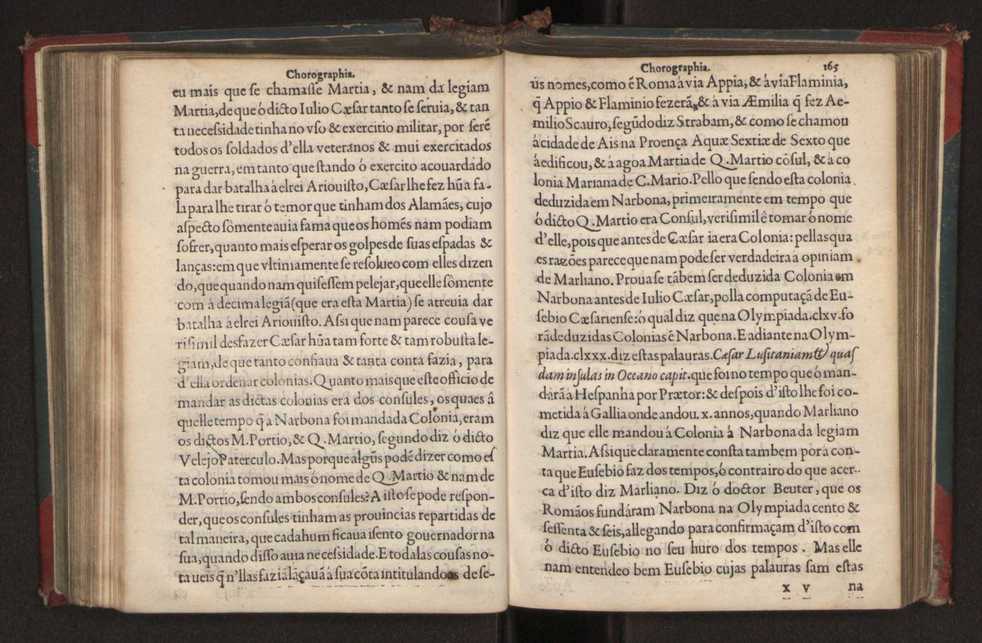 Chorographia.
eu mais que ſe chamaſſe Martia, & nam da legiam
Martia, de que ó dicto Iulio Cæſar tanto ſe ſeruia, & tan
ta neceſſidade tinha no vſo & exercitio militar, por ſerẽ
todos os ſoldados d'ella veteranos & mui exercitados
na guerra, em tanto que ſtando ó exercito acouardado
para dar batalha à elrei Ariouiſto, Cæſar lhe fez hũa fa-
la para lhe tirar ó temor que tinham dos Alamães, cujo
aſpecto ſómente auia fama que os homẽs nam podiam
ſofrer, quanto mais eſperar os golpes de ſuas eſpadas &
lanças: em que vltimamente ſe reſolueo com elles dizen
do, que quando nam quiſeſſem pelejar, que elle ſómente
com à decima legiã (que era eſta Martia) ſe atreuia dar
batalha à elrei Ariouiſto. Aſsi que nam parece couſa ve
riſimil desfazer Cæſar hũa tam forte & tam robuſta le-
giam, de que tanto confiaua & tanta conta fazia, para
d'ella ordenar colonias. Quanto mais que eſte officio de
mandar as dictas colonias era dos conſules, os quaes à
quelle tempo q̃ à Narbona foi mandada Colonia, eram
os dictos M. Portio, & Q. Martio, ſegundo diz ó dicto
Velejo Paterculo. Mas porque algũs podẽ dizer como eſ
ta colonia tomou mais ó nome de Q. Martio & nam de
M. Portio, ſendo ambos conſules? A iſto ſe pode reſpon-
der, que os conſules tinham as prouincias repartidas de
tal maneira, que cada hum ficaua iſento gouernador na
ſua, quando diſſo auia neceſsidade. E todalas couſas no-
taueis q̃ n'llas faziã lãçauã à ſua cõta intitulandoas de ſe-
Chorographia. 165
us nomes, como ẽ Roma à via Appia, & à via Flaminia,
q̃ Appio & Flaminio fezerã, & à via Æmilia q̃ fez Ae-
milio Scauro, ſegũdo diz Strabam, & como ſe chamou
à cidade de Ais na Proença Aquæ Sextiæ de Sexto que
à edificou, & à agoa Martia de Q. Martio cõſul, & à co
lonia Mariana de C. Mario. Pello que ſendo eſta colonia
deduzida em Narbona, primeiramente em tempo que
ó dicto Q. Martio era Conſul, veriſimil é tomar ó nome
d'elle, pois que antes de Cæſar ia era Colonia: pellas qua
es razões parece que nam pode ſer verdadeira à opiniam
de Marliano. Proua ſe tãbem ſer deduzida Colonia em
Narbona antes de Iulio Cæſar, polla computaçã de Eu-
ſebio Cæſarienſe: ó qual diz que na Olympiada. clxv. fo
rã deduzidas Colonias ẽ Narbona. E adiante na Olym-
piada. clxxx. diz eſtas palauras. Cæſar Luſitaniam & quaſ
dam inſulas in Oceano capit. que foi no tempo que ó man-
darã à Heſpanha por Prætor: & deſpois d'iſto lhe foi co-
metida à Gallia onde andou. x. annos, quando Marliano
diz que elle mandou à Colonia à Narbona da legiam
Martia. Aſsi que claramente conſta tambem por à con-
ta que Euſebio faz dos tempos, ó contrairo do que acer-
ca d'iſto diz Marliano. Diz ó doctor Beuter, que os
Romãos fundáram Narbona na Olympiada cento &
ſeſſenta & ſeis, allegando para confirmaçam d'iſto com
ó dicto Euſebio no ſeu liuro dos tempos. Mas elle
nam entendeo bem Euſebio cujas palauras ſam eſtas
X V na